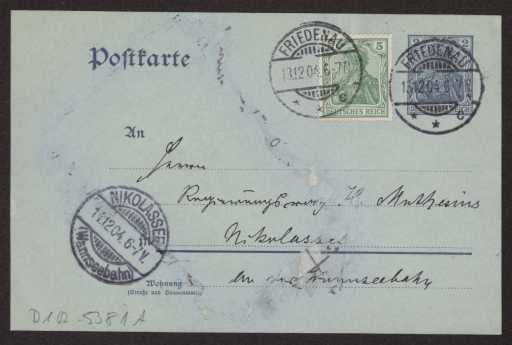 Postkarte
FRIEDENAU
13.12.04.6-7N.
c
5
DEUTSCHES REICH
2
2
FRIEDENAU
13.12.04.6-7N.
c
An
Herrn
Regierungsrat H. Muthesius
Nikolassee
An der Wannseebahn
NIKOLASSEE
14.12.04.6-7V.
(Wannseebahn)
in
Wohnung
(Straße und Hausnummer)
D102-5381A